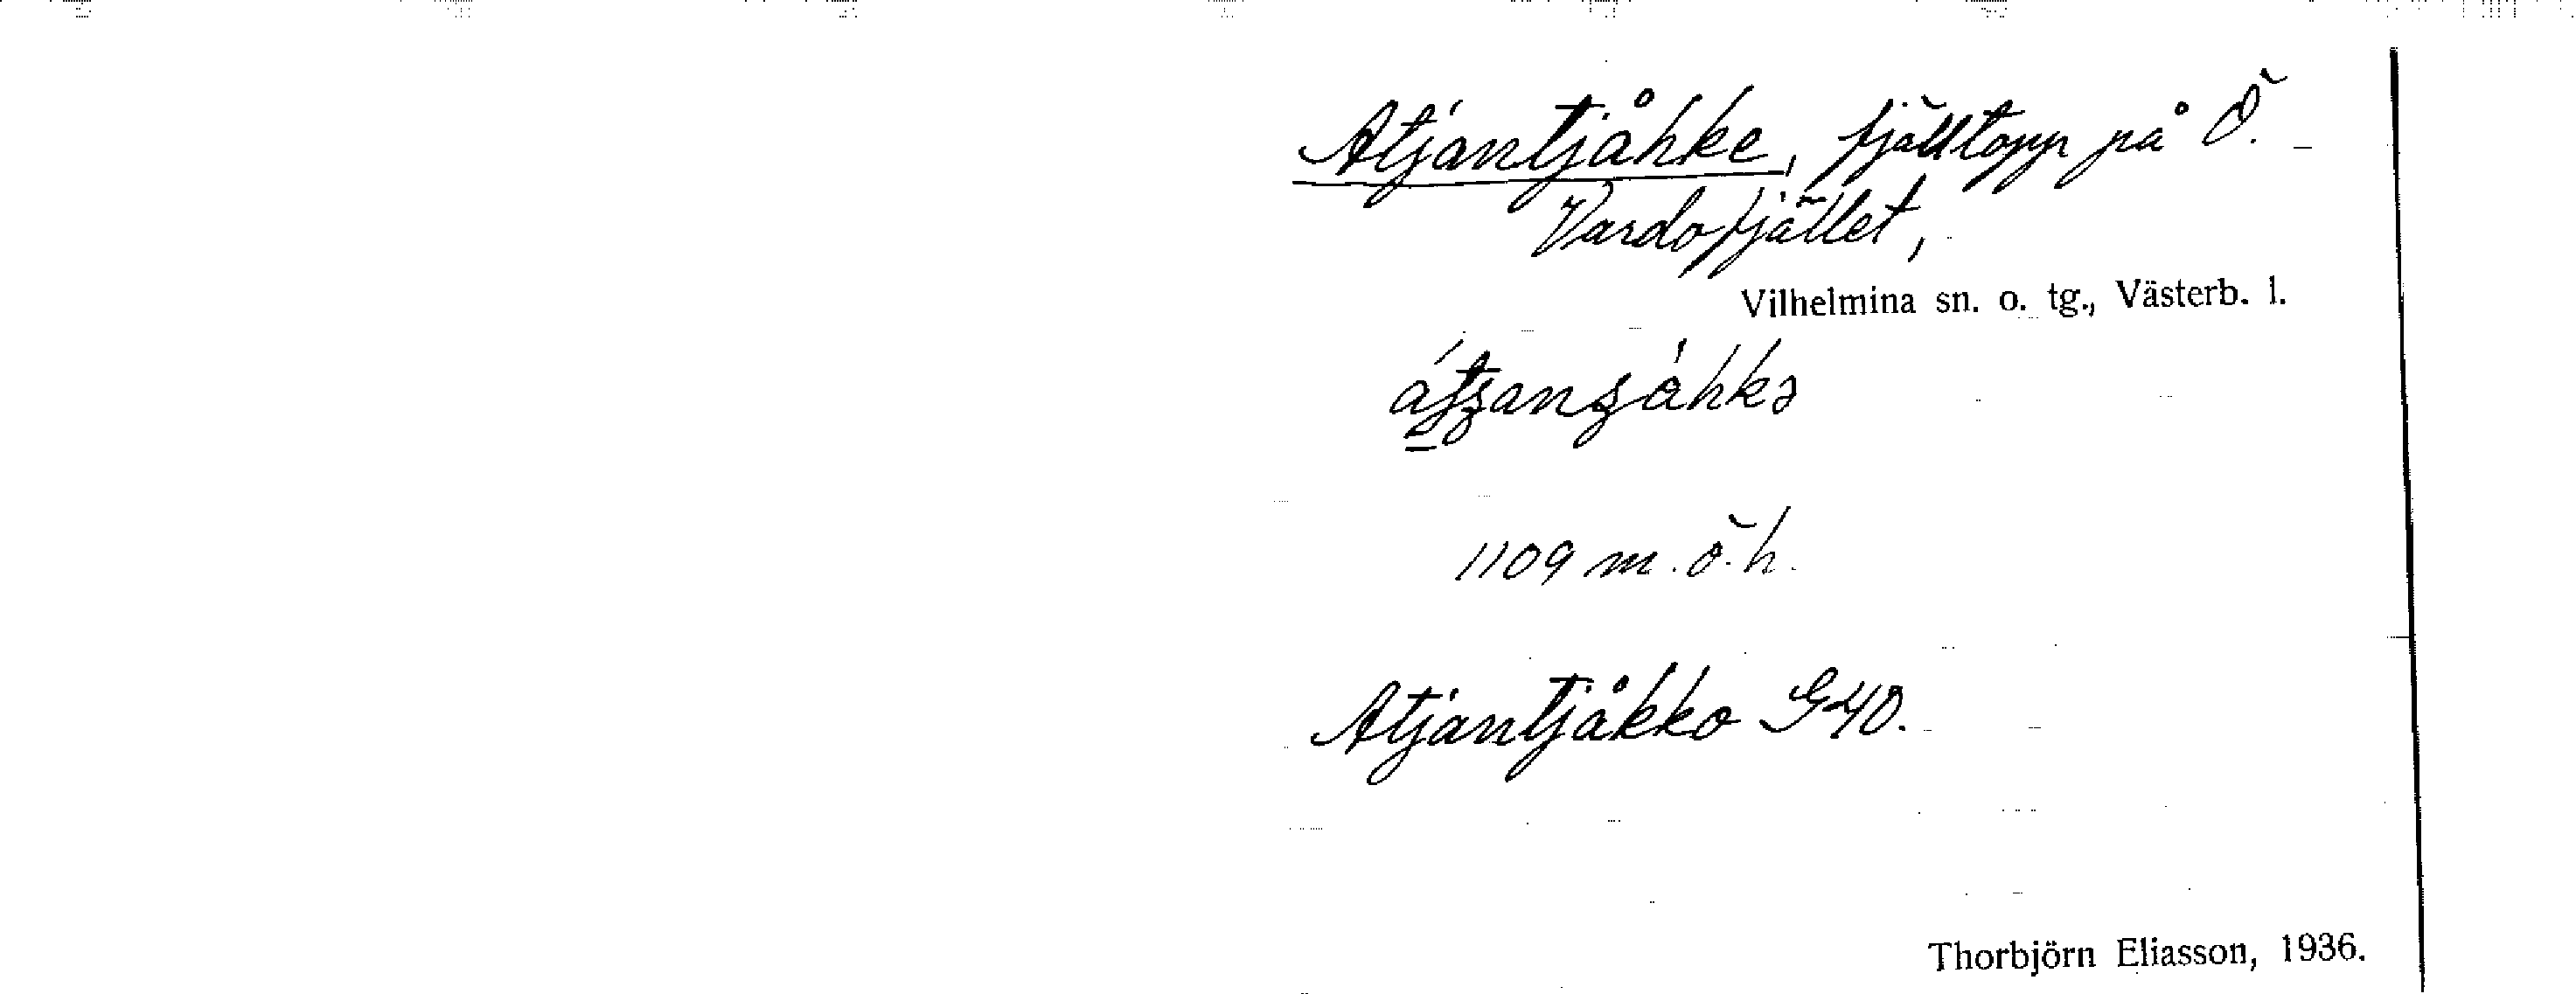 Atjantjåhke, fjälltopp på Ö.
Vardofjället,
Vilhelmina sn. o. tg., Västerb. l.
1109 m. ö. h.
Atjantjåkko G40.
Thorbjörn Eliasson, 1936.